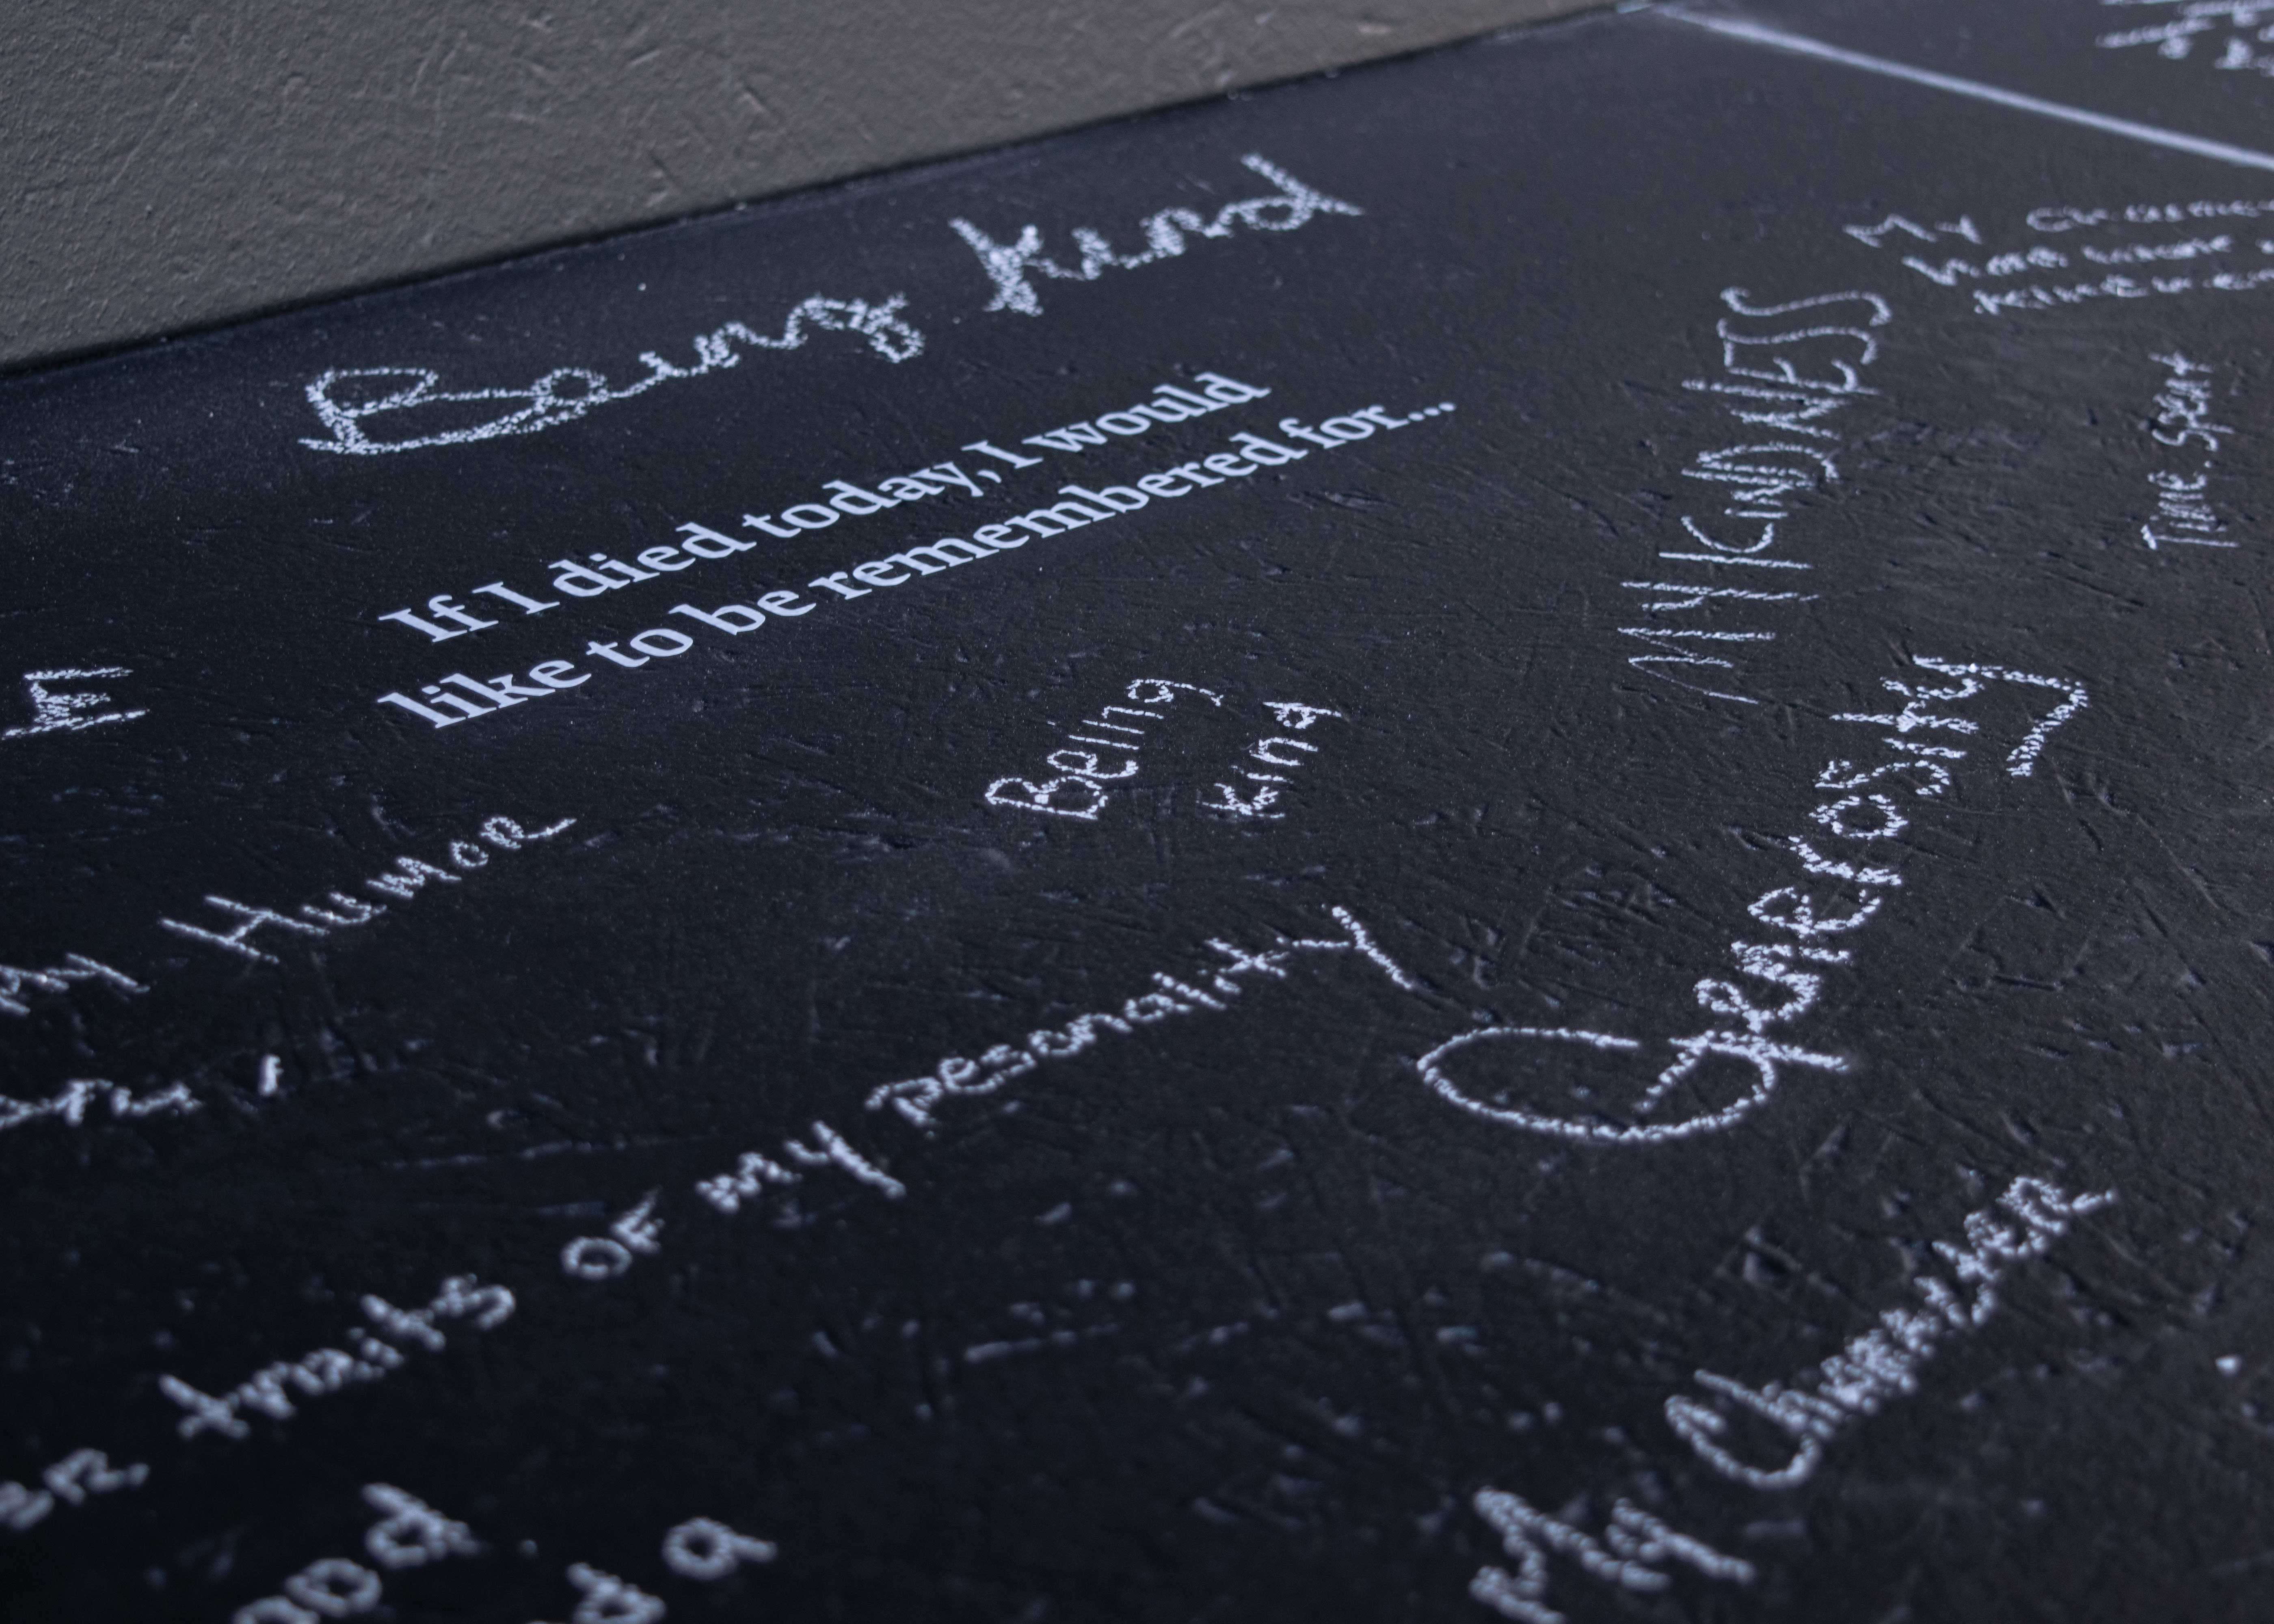 Being kind
If I died today, I would
like to be remembered for...
MY KINDNESS
My
Time spent
Being
kind
My Humor
Generosity
traits of my pesonality
My Character